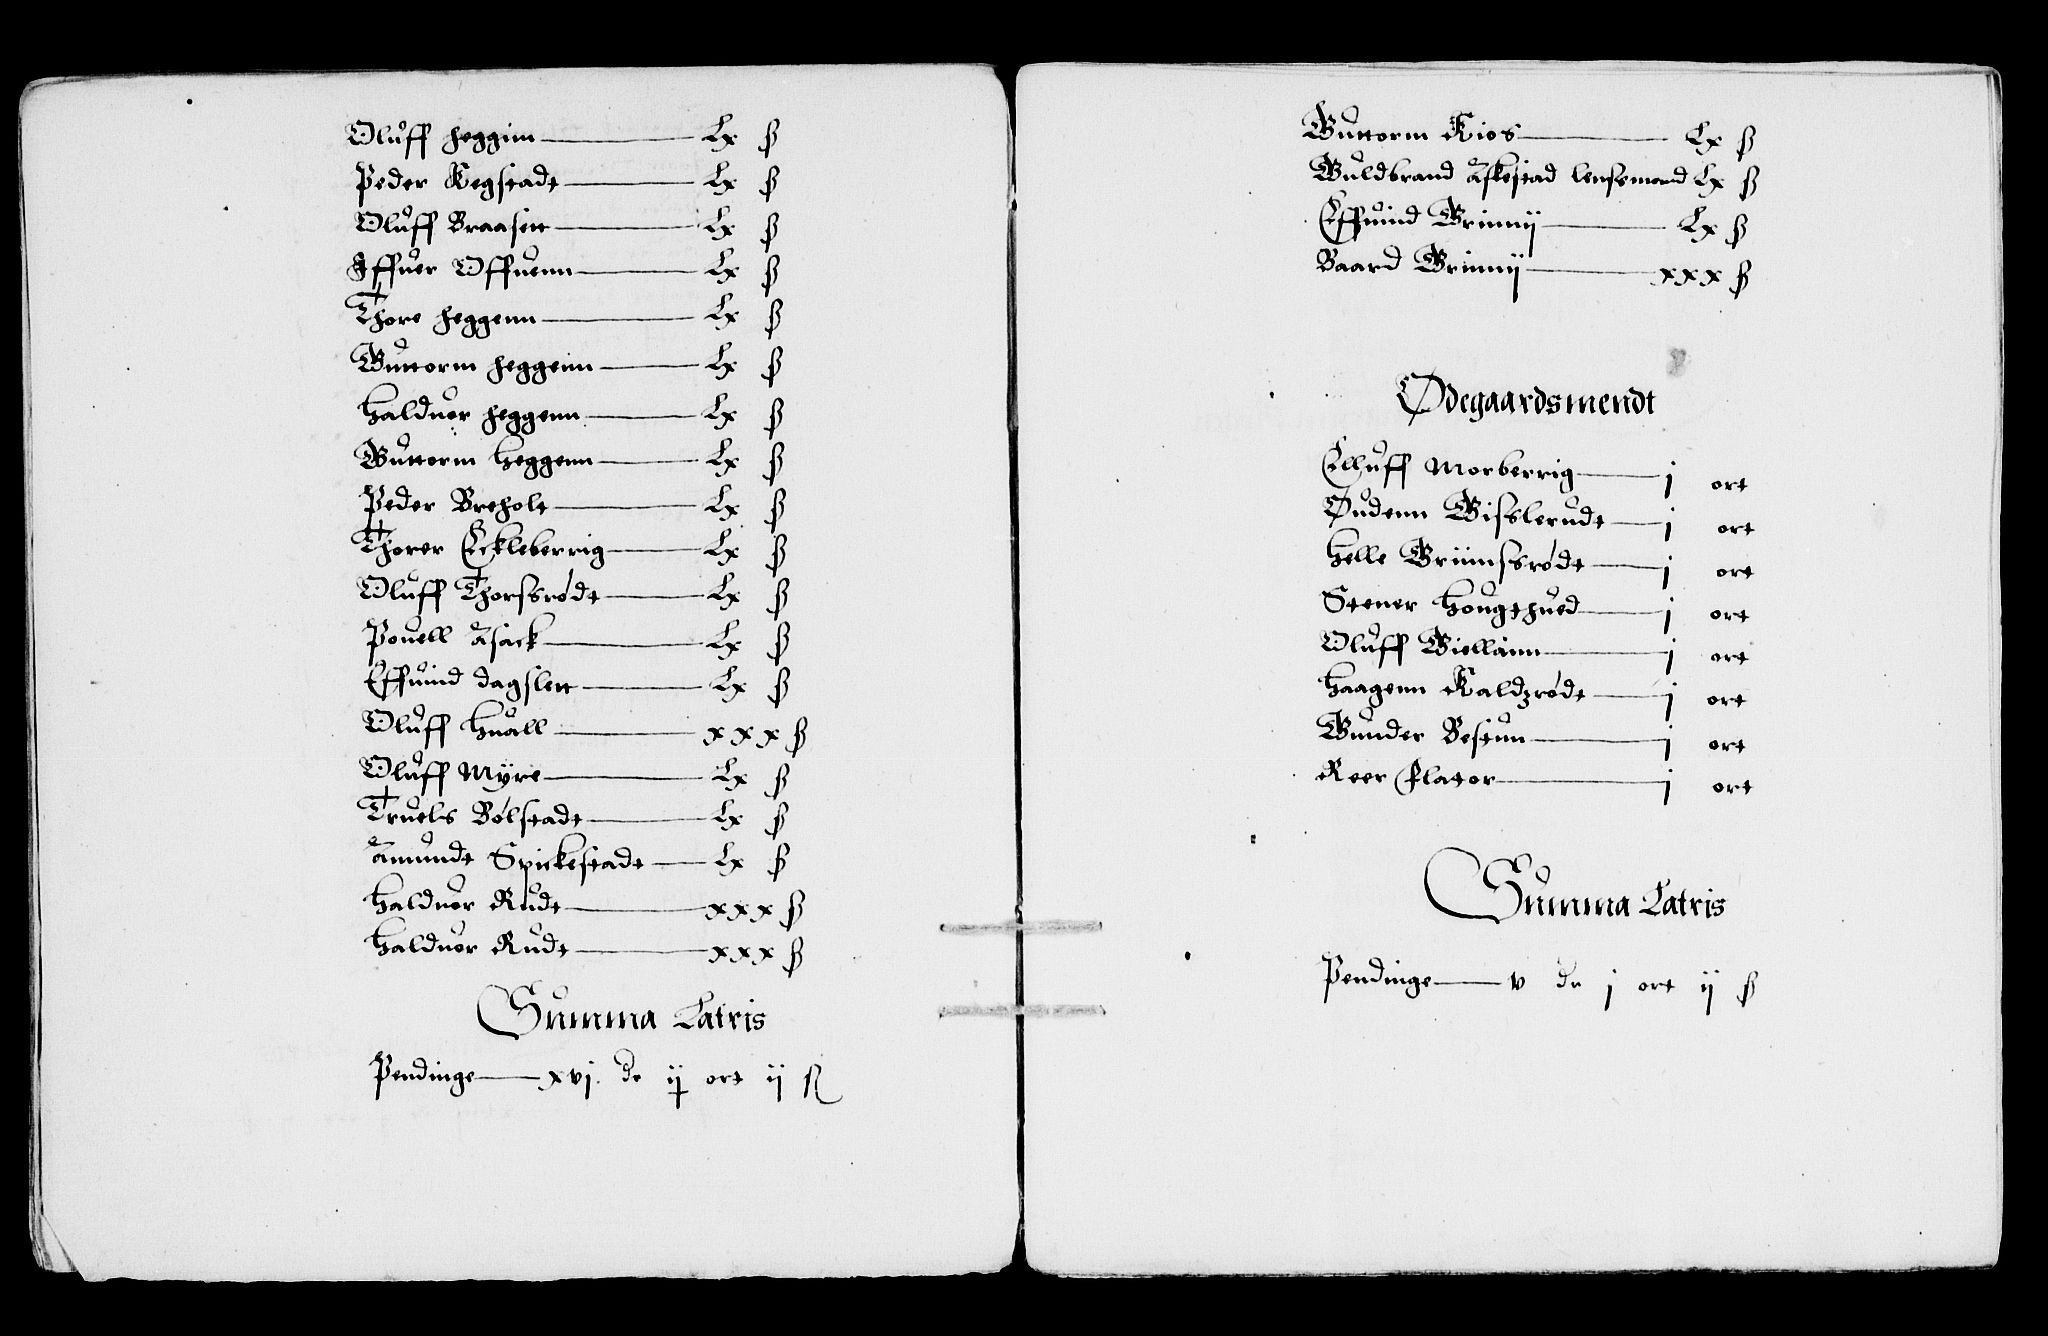 Oluff heggim — Lx ß
Peder Kegstadt — Lx ß
Oluff Braaſett — Lx ß
Iffuer Offuenn — Lx ß
Thore heggenn — Lx ß
Guttorm heggenn — Lx ß
Halduor heggenn — Lx ß
Guttorm Heggenn — Lx ß
Peder Breholt — Lx ß
Thorer Eckleberrig — Lx ß
Oluff Thorsrødt — Lx ß
Pouell Aſack — Lx ß
Effuind dagslett — Lx ß
Oluff Huall — xxx ß
Oluff Myre — Lx ß
Truels Bølstadt — Lx ß
Amundt Spickestadt — Lx ß
Halduor Rudt — xxx ß
Halduor Rudt — xxx ß
Summa Latris
Pendinge — xvj dr ij ort ij ß
Guttorm Kios — Lx ß
Guldbrand Askestad lensmand Lx ß
Effuind Grimmij — Lx ß
Baard Grimmij — xxx ß
Ødegaardsmendt
Elluff Morberrig — j ort
Oudenn Gisslerudt — j ort
Helle Griimsrødt — j ort
Stener Hougshued — j ort
Oluff Giellann — j ort
Haagenn Kaldzrødt — j ort
Gunder Bestun — j ort
Reer Flator — j ort
Summa Latris
Pendinge — v dr j ort ij ß